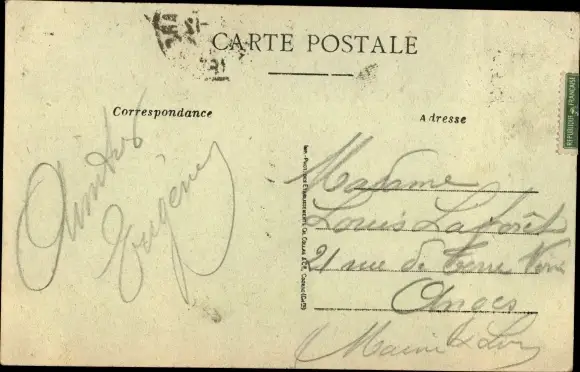 CARTE POSTALE
Correspondance
Adresse
Eugène
Madame
Louis Laforêt
21 rue de Terre Noire
Anges
Maine & Loir
REPUBLIQUE FRANÇAISE